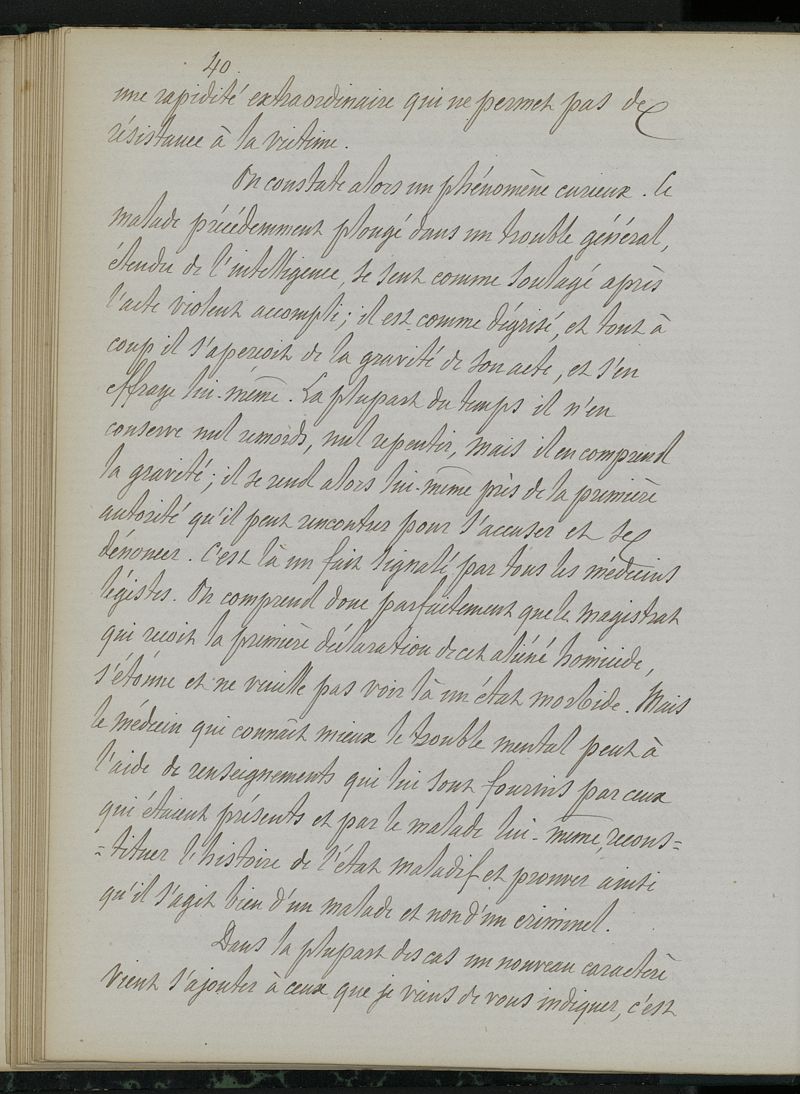 40.
une rapidité extraordinaire qui ne permet pas de
résistance à la victime.
On constate alors un phénomène curieux. Le
malade précédemment plongé dans un trouble général,
étendu de l'intelligence, se sent comme soulagé après
l'acte violent accompli; il est comme dégrisé, et tout à
coup il s'aperçoit de la gravité de son acte, et s'en
effraye lui-même. La plupart du temps il n'en
conserve nul remords, nul repentir, mais il en comprend
la gravité; il se rend alors lui-même près de la première
autorité qu'il peut rencontrer pour s'accuser et se
dénoncer. C'est là un fait signalé par tous les médecins
légistes. On comprend donc parfaitement que le magistrat
qui reçoit la première déclaration de cet aliéné homicide,
s'étonne et ne veuille pas voir là un état morbide. Mais
le médecin qui connaît mieux le trouble mental peut à
l'aide de renseignements qui lui sont fournis par ceux
qui étaient présents et par le malade lui-même, recons=
=tituer l'histoire de l'état maladif et prouver ainsi
qu'il s'agit bien d'un malade et non d'un criminel.
Dans la plupart des cas un nouveau caractère
vient s'ajouter à ceux que je viens de vous indiquer, c'est